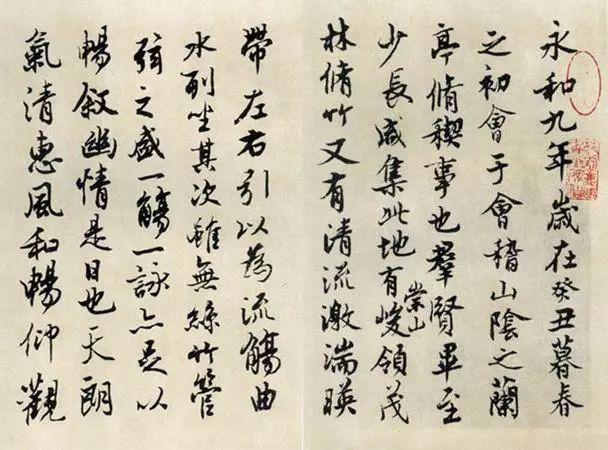 永和九年歲在癸丑暮春
之初會于會稽山陰之蘭
亭脩稧事也羣賢畢至
少長咸集此地有崇山峻領茂
林脩竹又有清流激湍暎
帶左右引以為流觴曲
水列坐其次雖無絲竹管
弦之盛一觴一詠亦足以
暢敘幽情是日也天朗
氣清惠風和暢仰觀